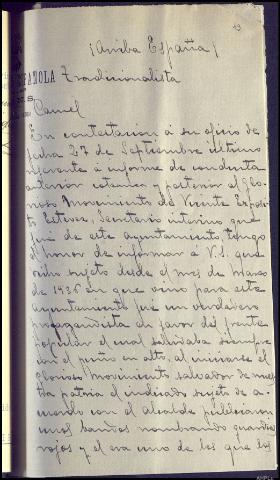 13
¡Arriba España!
PAÑOLA Tradicionalista
N.S.
En contestacion á su oficio de
fecha 27 de Septiembre último
referente á informe de conducta
anterior coetanea y posterior al Glo-
rioso Movimiento de Vicente Expósi-
to Esteves, Secretario interino que
fué de este ayuntamiento, tengo
el honor de informar á V.S. que
dicho sujeto desde el mes de Marzo
de 1936 en que vino para este
Ayuntamiento fué un verdadero
propagandista en favor del frente
popular el cual saludaba siempre
con el puño en alto, al iniciarse el
glorioso movimiento salvador de nues
tra patria el indicado sujeto de a-
cuerdo con el alcalde publicaron
unos bandos nombrando guardias
rojos y el era uno de los que los